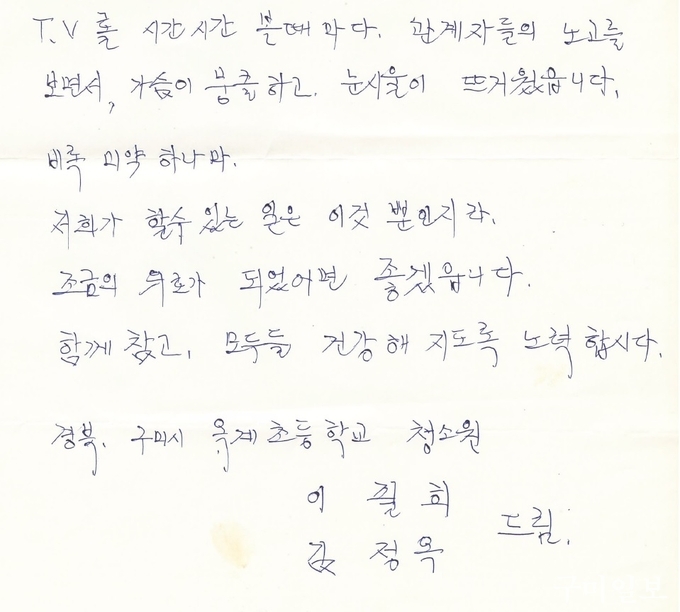 T.V를 시간시간 볼때마다. 관계자들의 노고를
보면서, 가슴이 뭉클하고. 눈시울이 뜨거웠읍니다.
비록 미약 하나마.
저희가 할수있는 일은 이것 뿐인지라.
조금의 위로가 되었어면 좋겠읍니다.
함께 참고, 모두들 건강해 지도록 노력합시다.
경북. 구미시 옥계초등학교 청소원
이 필 희
김 정 옥 드림.